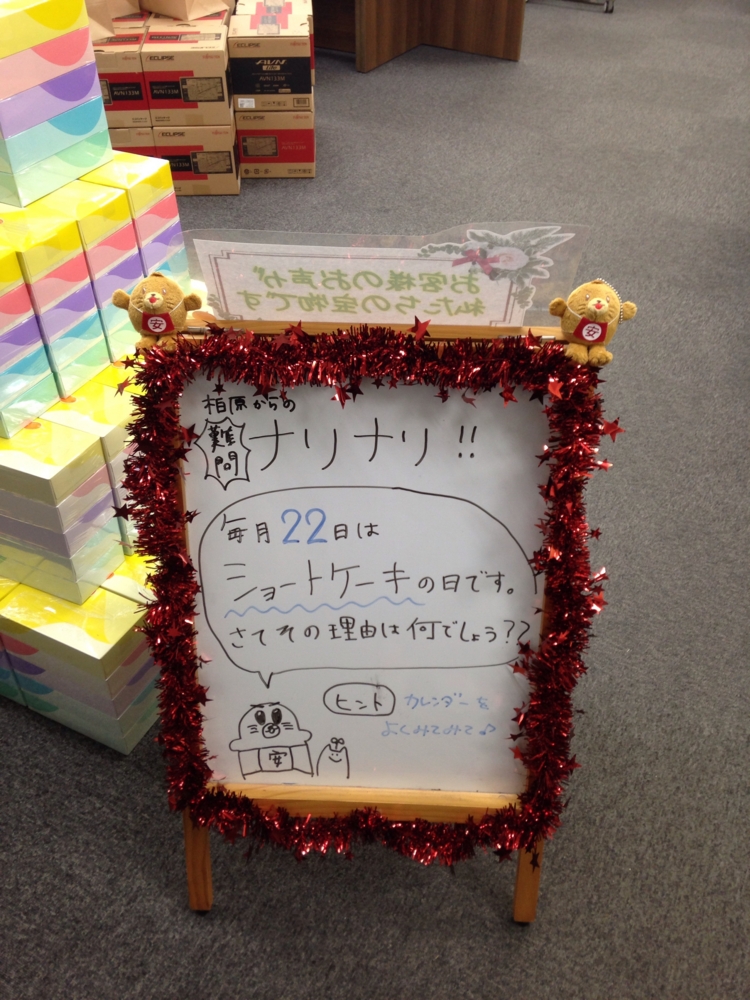 ECLIPSE
AVN133M
AVN133M
ECLIPSE
AVN
AVN133M
ECLIPSE
ECLIPSE
お客様のお声が
私たちの宝物です
安
安
柏原からの
難問
ナリナリ!!
毎月22日は
ショートケーキの日です。
さてその理由は何でしょう??
ヒント
カレンダーを
よくみてみて♪
安